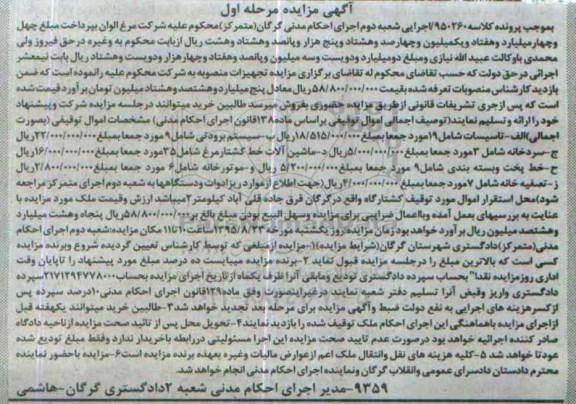 آگهی مزایده مرحله اول
بموجب پرونده کلاسه ۹۵۰۲۶۰/اجرایی شعبه دوم اجرای احکام مدنی گرگان(متمرکز)محکوم علیه شرکت مرغ الوان بپرداخت مبلغ چهل
وچهارمیلیارد وهفتاد ویکمیلیون وچهارصد وهشتاد وپنج هزار وپانصد وهشتاد وهشت ریال ازبابت محکوم به وغیره درحق فیروز ولی
محمدی باوکالت عبید الله نیازی ومبلغ دومیلیارد ودویست وسه میلیون وپانصد وهفتاد وچهارهزار ودویست وهشتاد ریال بابت نیمعشر
اجرائی درحق دولت که حسب تقاضای محکوم له تقاضای برگزاری مزایده تجهیزات منصوبه به شرکت محکوم علیه رانموده است که ضمن
بازدید کارشناس منصوبات تعرفه شده بقیمت ۵۸/۸۰۰/۰۰۰/۰۰۰ریال معادل پنج میلیارد وهشتصد وهشتاد میلیون تومان برآورد قیمت شده
است که پس ازجری تشریفات قانونی ازطریق مزایده حضوری بفروش میرسد طالبین خرید میتوانند درجلسه مزایده شرکت وپیشنهاد
خود را ارائه و تسلیم نمایند(توصیف اجمالی اموال توقیفی براساس ماده۱۳۸قانون اجرای احکام مدنی) مشخصات اموال توقیفی (بصورت
اجمالی)الف-تاسیسات شامل۱۹مورد جمعا بمبلغ ۱۸/۵۱۵/۰۰۰/۰۰۰ریال ب-سیستم برودتی شامل۹مورد جمعا بمبلغ۲۲/۰۰۰/۰۰۰/۰۰۰ریال
ج-سردخانه شامل ۲مورد جمعا بمبلغ ۵/۰۰۰/۰۰۰/۰۰۰ریال د-ماشین آلات خط کشتارمرغ شامل۳۵مورد جمعا بمبلغ۱۶/۰۰۰/۰۰۰/۰۰۰ریال
ح-خط پخت وبسته بندی شامل۹ مورد جمعا بمبلغ۵/۳۰۰/۰۰۰/۰۰۰ریال و-موتورخانه شامل۶ مورد جمعا بمبلغ۲/۸۰۰/۰۰۰/۰۰۰ریال
ز-تصفیه خانه شامل ۷مورد جمعا بمبلغ۴/۰۰۰/۰۰۰/۰۰۰ریال(جهت اطلاع ازموارد ریزادوات ودستگاهها به شعبه دوم اجرای متمرکز مراجعه
شود)محل استقرار اموال مورد توقیف کشتارگاه واقع درگرگان قرق جاده قلی آباد کیلومتر۲میباشد ارزش وقیمت ملک مورد مزایده با
عنایت به بررسیهای بعمل آمده وبااعمال ضرایبی برای مزایده وسهل البیع بودن مبلغ بالغ بر۵۸/۸۰۰/۰۰۰/۰۰۰ریال پنجاه وهشت میلیارد
وهشتصد میلیون ریال برآورد خواهد بود زمان مزایده:روز یکشنبه مورخه ۱۳۹۵/۸/۲۳ساعت۱۰تا۱۱ مکان مزایده:شعبه دوم اجرای احکام
مدنی(متمرکز)دادگستری شهرستان گرگان(شرایط مزایده)۱-مزایده ازمبلغی که توسط کارشناس تعیین گردیده شروع وبرنده مزایده
کسی است که بالاترین مبلغ را درجلسه مزایده قبول نماید ۲-برنده مزایده میبایست ده درصد مبلغ مورد پیشنهاد را تاپایان وقت
اداری روزمزایده نقدا" بحساب سپرده دادگستری تودیع ومابقی آنرا ظرف یکماه از تاریخ اجرای مزایده بحساب۲۱۷۱۲۹۴۷۷۸۰۰۰سپرده
دادگستری واریز وقبض آنرا تسلیم دفتر شعبه نمایند درغیراینصورت وفق ماده۱۲۹قانون اجرای احکام مدنی۱۰درصد سپرده پس
ازکسرهزینه های اجرایی به نفع دولت ضبط و آگهی مزایده برای مرحله بعد تجدید خواهد شد۳-طالبین خرید میتوانند یکهفته قبل
ازاجرای مزایده باهماهنگی این اجرای احکام ملک توقیف شده را بازدید نمایند۴-تحویل محل پس از تائید صحت مزایده ازناحیه دادگاه
صادر کننده اجرائیه خواهد بود درصورت عدم تایید صحت مزایده این اجرا مسئولیتی دررابطه باخریدار ندارد وفقط مبلغ تودیع شده
عودتا خواهد شد ۵-کلیه هزینه های نقل وانتقال ملک اعم ازعوارض مالیات وغیره بعهده برنده مزایده است۶-مزایده باحضور نماینده
محترم دادستان دادسرای عمومی وانقلاب گرگان ونماینده اجرای احکام مدنی انجام خواهد شد.
۹۳۵۹-مدیر اجرای احکام مدنی شعبه ۲دادگستری گرگان-هاشمی